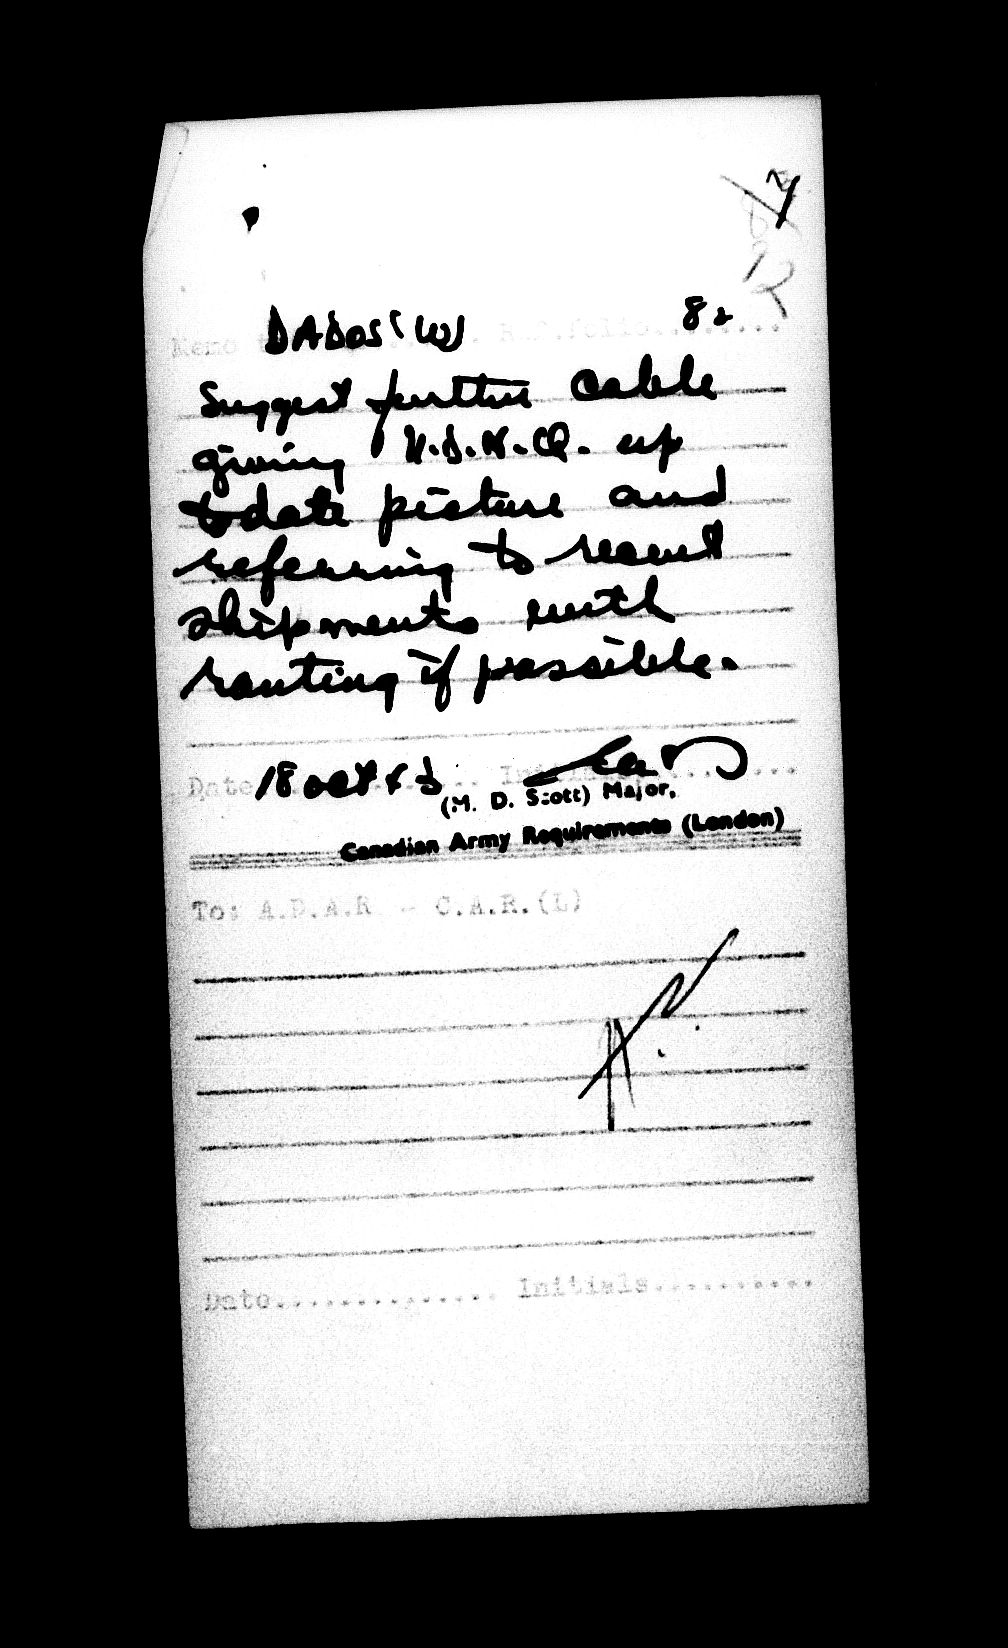 DADOS (W) 82
Memo R.S. folio........
Suggest further cable
giving N.D.H.Q. up
to date picture and
referring to recent
shipments with
routing if possible.
Date 18 Oct 43 Initials.........
(M. D. Scott) Major,
Canadian Army Requirements (London)
To: A.D.A.R - C.A.R.(L)
Date.............. Initials..........